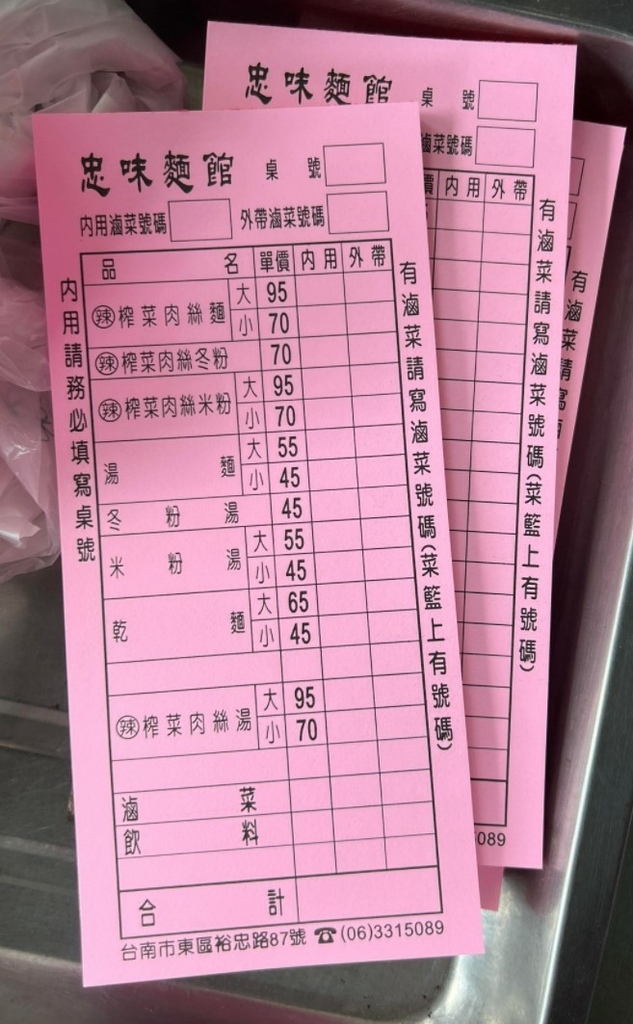 忠味麵館 桌號
內用滷菜號碼 外帶滷菜號碼
內用請務必填寫桌號
品名 單價 內用 外帶
辣 榨菜肉絲麵 大 95
小 70
辣 榨菜肉絲冬粉 70
辣 榨菜肉絲米粉 大 95
小 70
湯麵 大 55
小 45
冬粉湯 45
米粉湯 大 55
小 45
乾麵 大 65
小 45
辣 榨菜肉絲湯 大 95
小 70
滷菜
飲料
合計
有滷菜請寫滷菜號碼(菜籃上有號碼)
台南市東區裕忠路87號 ☎(06)3315089
忠味麵館 桌號
滷菜號碼
價 內用 外帶
有滷菜請寫滷菜號碼(菜籃上有號碼)
5089
有滷菜請寫